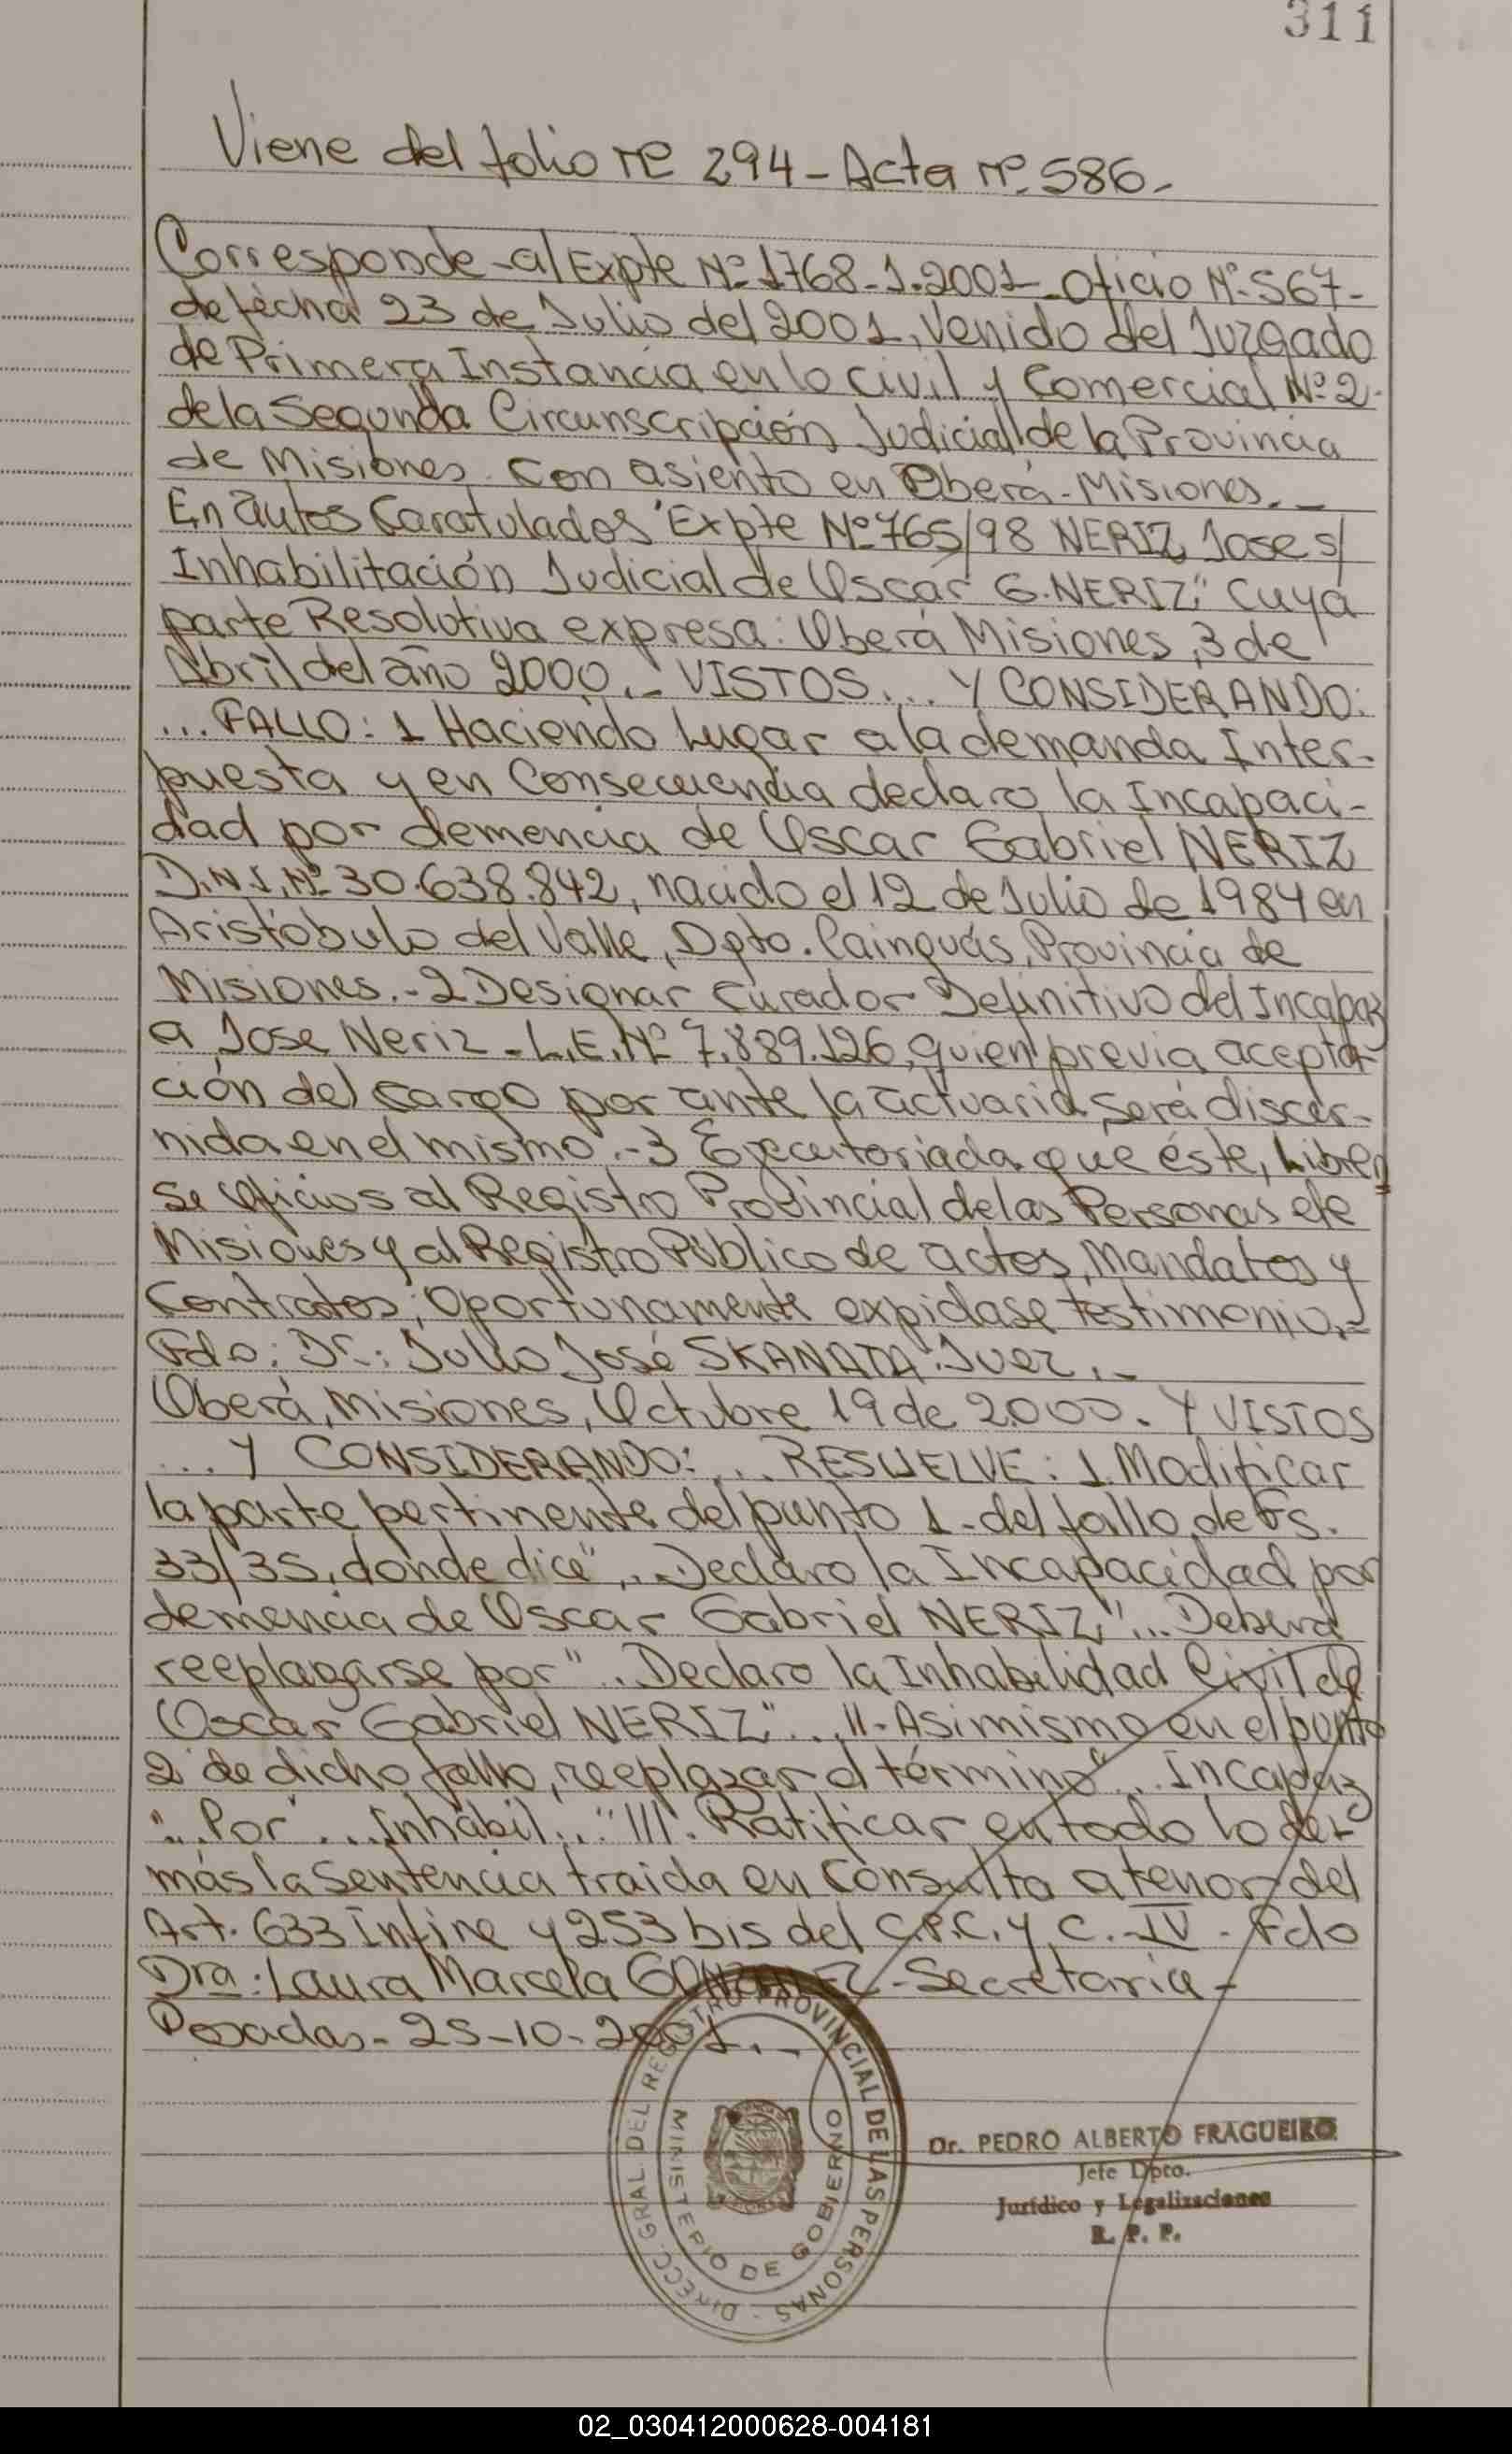 311
Viene del folio nº 294 - Acta nº 586.
Corresponde al Expte Nº 1768-1-2001 - Oficio Nº 567-
de fecha 23 de Julio del 2001, Venido del Juzgado
de Primera Instancia en lo Civil y Comercial Nº 2-
de la Segunda Circunscripción Judicial de la Provincia
de Misiones. Con asiento en Oberá - Misiones.-
En autos Caratulados "Expte Nº 765/98 NERIZ, Jose s/
Inhabilitación Judicial de Oscar G. NERIZ," Cuya
parte Resolutiva expresa: Oberá Misiones, 3 de
Abril del año 2000.- VISTOS... Y CONSIDERANDO:
... FALLO: 1 Haciendo Lugar a la demanda Inter-
puesta y en Consecuencia declaro la Incapaci-
dad por demencia de Oscar Gabriel NERIZ
D.N.I. Nº 30.638.842, nacido el 12 de Julio de 1984 en
Aristóbulo del Valle, Dpto. Cainguás, Provincia de
Misiones.- 2 Designar Curador Definitivo del Incapaz
a Jose Neriz - L.E. Nº 7.889.126, quien previa acepta-
ción del cargo por ante la actuaria será discer-
nida en el mismo.- 3 Ejecutoriada que éste, Libren
se Oficios al Registro Provincial de las Personas de
Misiones y al Registro Público de actos, Mandatos y
Contratos; Oportunamente expídase testimonio.=
Fdo: Dr.: Julio José SKANATA. Juez.-
Oberá, Misiones, Octubre 19 de 2000. Y VISTOS
... Y CONSIDERANDO: ... RESUELVE: 1. Modificar
la parte pertinente del punto 1- del fallo de Fs.
33/35, donde dice "... Declaro la Incapacidad por
demencia de Oscar Gabriel NERIZ"... Deberá
reeplazarse por "... Declaro la Inhabilidad Civil de
Oscar Gabriel NERIZ"... II- Asimismo en el punto
2 de dicho fallo, reeplazar el término "... Incapaz
"... Por "... Inhábil..." III. Ratificar en todo lo de-
más la Sentencia traida en Consulta a tenor del
Art. 633 Infine y 253 bis del C.P.C. y C. - IV - Fdo
Dra: Laura Marcela GONZALEZ - Secretaria -
Posadas - 25-10-2001.-
DIRECC. GRAL. DEL REGISTRO PROVINCIAL DE LAS PERSONAS -
MINISTERIO DE GOBIERNO
Dr. PEDRO ALBERTO FRAGUEIRO
Jefe Dpto.
Jurídico y Legalizaciones
R. P. P.
02_030412000628-004181